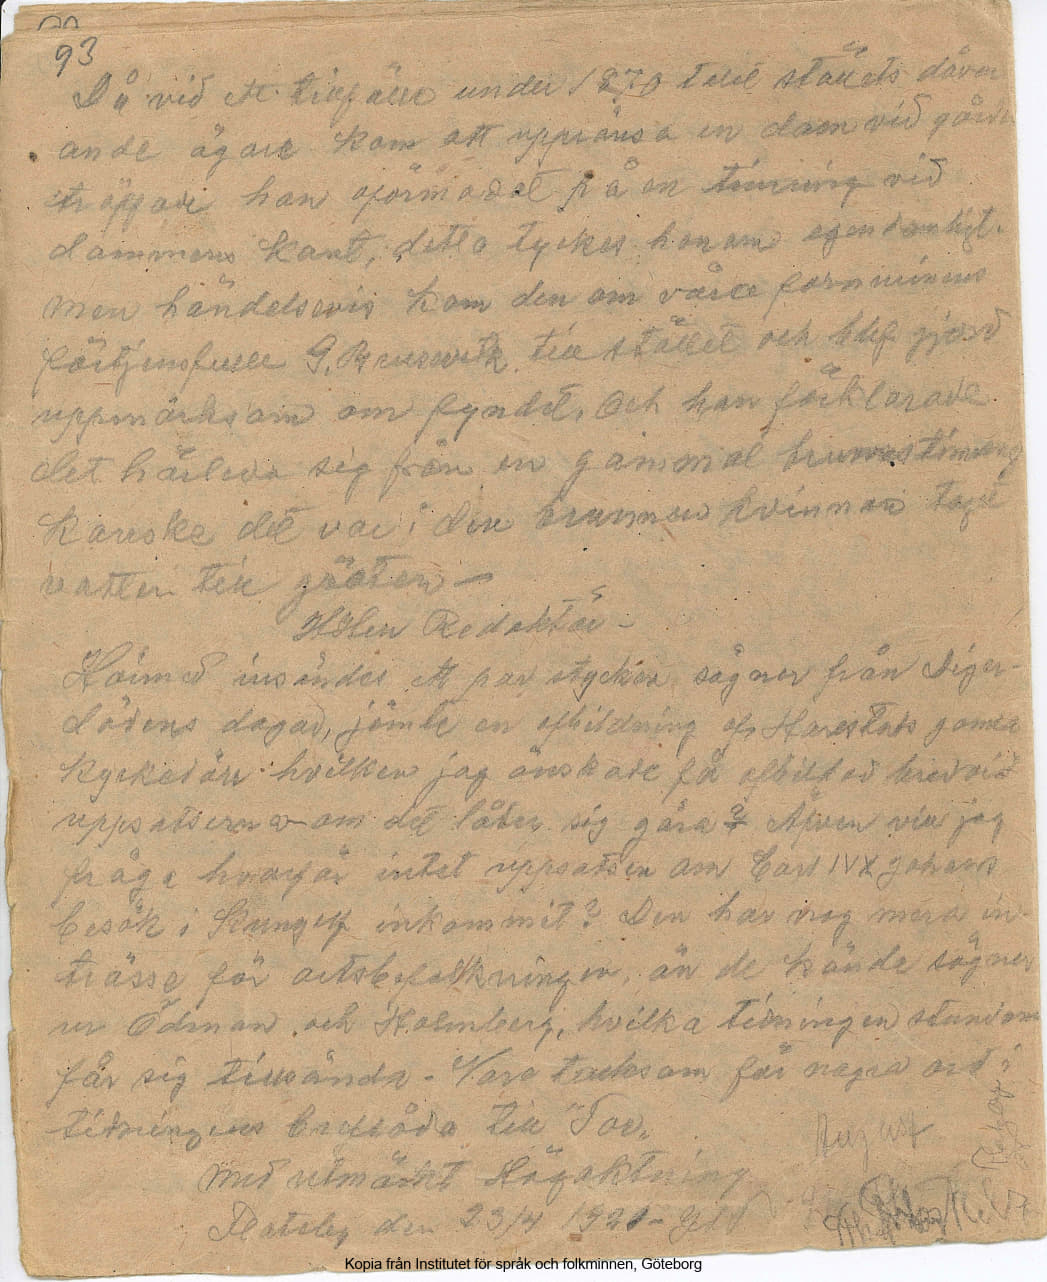 93
Då vid ett tillfälle under 1870 talet ställets dåvar
ande ägare kom att upprensa en dam vid gården
träffade han oförmodat på en timring vid
dammens kant, detta tyckes honom egendomligt.
Men händelsevis kom den om våra fornminnens
förtjensfulle G. Brusewitz till stället och blef gjord
uppmärksam om fyndet, och han förklarade
det härleda sig från en gammal brunnstimring
kanske det var i den brunnen kvinnan tagit
vatten till gröten —
Herr Redaktör –
Härmed insändes ett par stycken sägner från Diger-
dödens dagar, jämte en afbildning af Harestads gamla
kyrkodörr hvilken jag önskade få afbildad bredvid
uppsatserna om det låter sig göra? Äfven vill jag
fråga hvarför intet uppsatsen om Carl IVX Johans
besök i Kungelf inkommit? Den har nog mera in-
trässe för ortsbefolkningen, än de kända sägner
ur Ödman och Holmberg, hvilka tidningen stundom
får sig tillsända – Vore tacksam för några ord i
tidningens breflåda till Tor.
Med utmärkt Högaktning
den 23/4 1921
August
Kopia från Institutet för språk och folkminnen, Göteborg